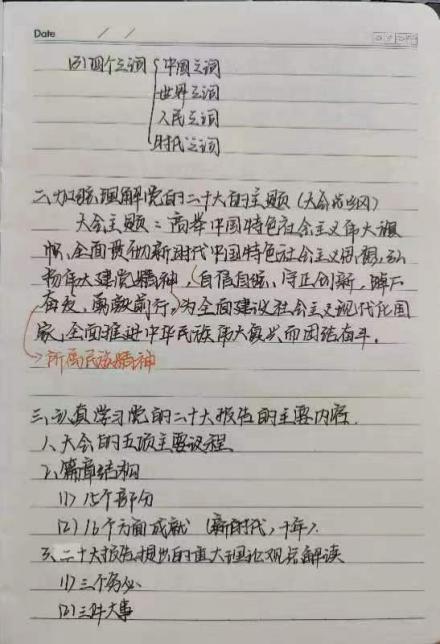 Date / /
(3) 四个之问 中国之问
世界之问
人民之问
时代之问
二、加强理解党的二十大的主题(大会总纲)
大会主题:高举中国特色社会主义伟大旗
帜、全面贯彻新时代中国特色社会主义思想,弘
扬伟大建党精神,自信自强、守正创新,踔厉
奋发、勇毅前行,为全面建设社会主义现代化国
家、全面推进中华民族伟大复兴而团结奋斗。
→所属民族精神
三、认真学习党的二十大报告的主要内容.
1、大会的五项主要议程
2、篇章结构
(1) 15个部分
(2) 16个方面成就 (新时代,十年).
3、二十大报告提出的重大理论观点解读
(1) 三个务必
(2) 三件大事